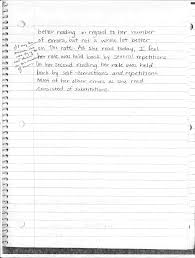 better reading in regard to her number
of errors, but not a whole lot better
on the rate. As she read today, I feel
her rate was held back by several repetitions
in her second reading her rate was held
back by self-corrections and repetitions
Most of her errors as she read
consisted of substitutions.